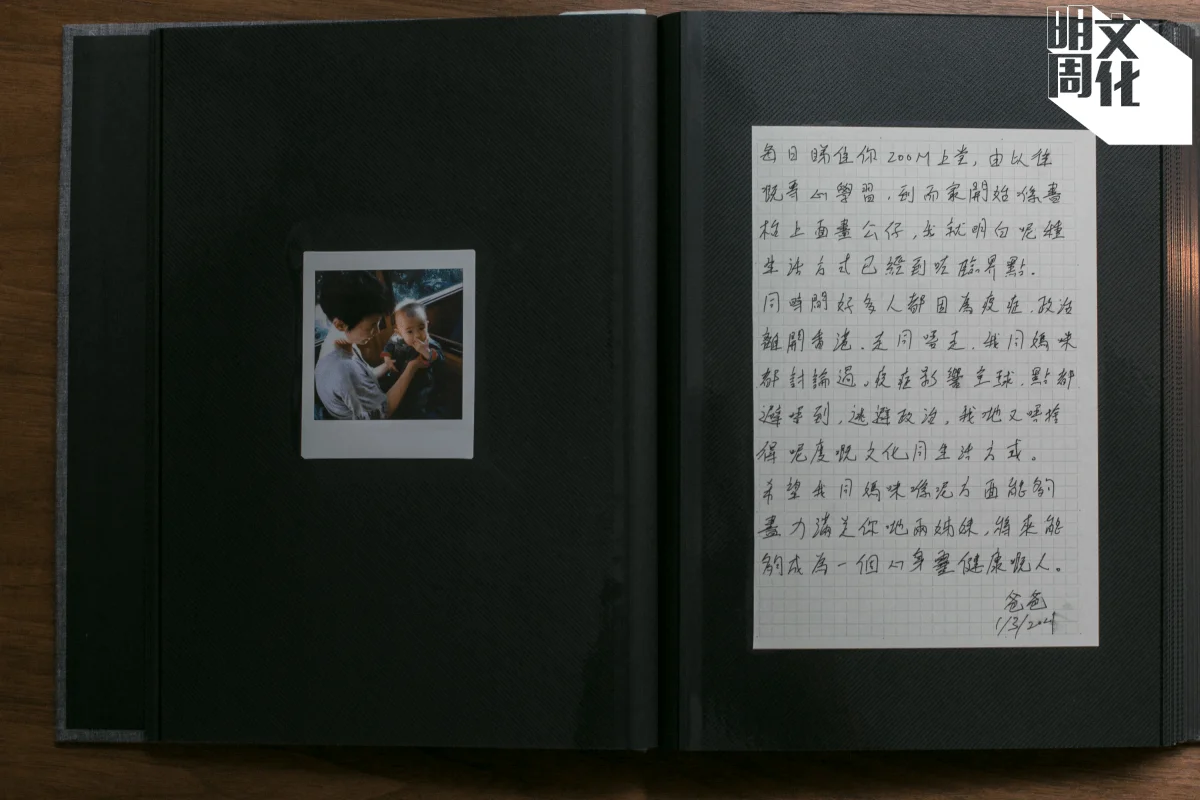 明周
文化
每日睇住你ZOOM上堂,由以往
嘅專心學習,到而家開始係書
枱上面畫公仔,我就明白呢種
生活方式已經到咗臨界點.
同時間好多人都因為疫症.政治
離開香港.走同唔走.我同媽咪
都討論過。疫症影響全球.點都
避唔到,逃避政治,我哋又唔捨
得呢度嘅文化同生活方式。
希望我同媽咪喺呢方面能夠
盡力滿足你哋兩姊妹,將來能
夠成為一個心身靈健康嘅人。
爸爸
1/3/2021